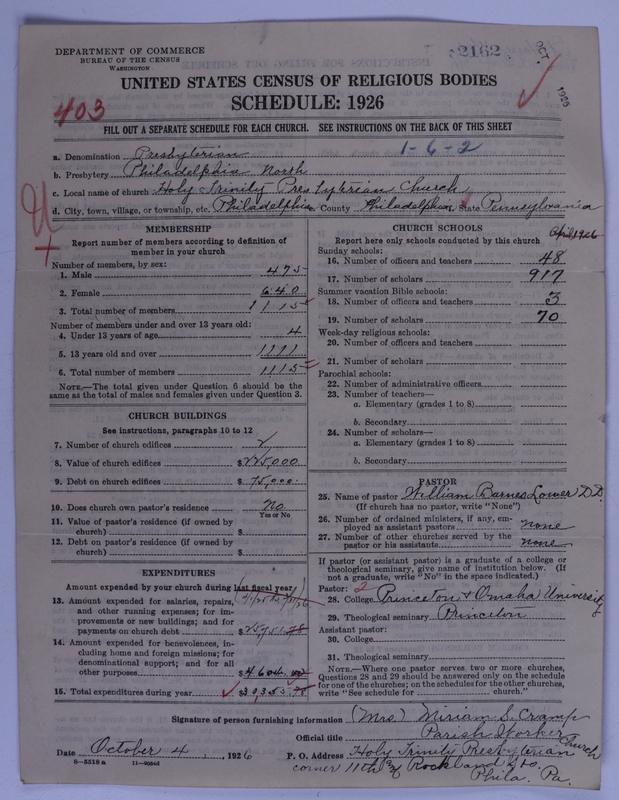 DEPARTMENT OF COMMERCE
BUREAU OF THE CENSUS
WASHINGTON
2162
OCT
1926
UNITED STATES CENSUS OF RELIGIOUS BODIES
SCHEDULE: 1926
403
FILL OUT A SEPARATE SCHEDULE FOR EACH CHURCH. SEE INSTRUCTIONS ON THE BACK OF THIS SHEET
1-6-2
a. Denomination Presbyterian
b. Presbytery Philadelphia North
c. Local name of church Holy Trinity Presbyterian Church
d. City, town, village, or township, etc. Philadelphia County Philadelphia State Pennsylvania
MEMBERSHIP
Report number of members according to definition of
member in your church
Number of members, by sex:
1. Male 475
2. Female 640
3. Total number of members 1115
Number of members under and over 13 years old:
4. Under 13 years of age 4
5. 13 years old and over 1111
6. Total number of members 1115
NOTE.—The total given under Question 6 should be
same as the total of males and females given under Question 3.
CHURCH BUILDINGS
See instructions, paragraphs 10 to 12
7. Number of church edifices 2
8. Value of church edifices $225,000
9. Debt on church edifices $75,000
10. Does church own pastor's residence No
Yes or No
11. Value of pastor's residence (if owned by
church) $
12. Debt on pastor's residence (if owned by
church) $
EXPENDITURES
Amount expended by your church during last fiscal year
13. Amount expended for salaries, repairs,
and other running expenses; for im-
provements or new buildings; and for
payments on church debt $25,751.78
14. Amount expended for benevolences, in-
cluding home and foreign missions; for
denominational support; and for all
other purposes $4604.00
15. Total expenditures during year $30,355.78
CHURCH SCHOOLS
Report here only schools conducted by this church April 1926
Sunday schools:
16. Number of officers and teachers 48
17. Number of scholars 917
Summer vacation Bible schools:
18. Number of officers and teachers 3
19. Number of scholars 70
Week-day religious schools:
20. Number of officers and teachers
21. Number of scholars
Parochial schools:
22. Number of administrative officers
23. Number of teachers—
a. Elementary (grades 1 to 8)
b. Secondary
24. Number of scholars—
a. Elementary (grades 1 to 8)
b. Secondary
PASTOR
25. Name of pastor William Barnes Lower D.D.
(If church has no pastor, write "None")
26. Number of ordained ministers, if any, em-
ployed as assistant pastors none
27. Number of other churches served by the
pastor or his assistants none
If pastor (or assistant pastor) is a graduate of a college or
theological seminary, give name of institution below. (If
not a graduate, write "No" in the space indicated.)
Pastor: 2
28. College Princeton & Omaha University
29. Theological seminary Princeton
Assistant pastor:
30. College
31. Theological seminary
NOTE.—Where one pastor serves two or more churches,
Questions 28 and 29 should be answered only on the schedule
for one of the churches; on the schedules for the other churches,
write "See schedule for church."
Signature of person furnishing information (Mrs) Miriam S. Cramp
Official title Parish Worker
Date October 4, 1926 P. O. Address Holy Trinity Presbyterian Church
8—5518 a
corner 11th & Rockland Sts.
Phila. Pa.